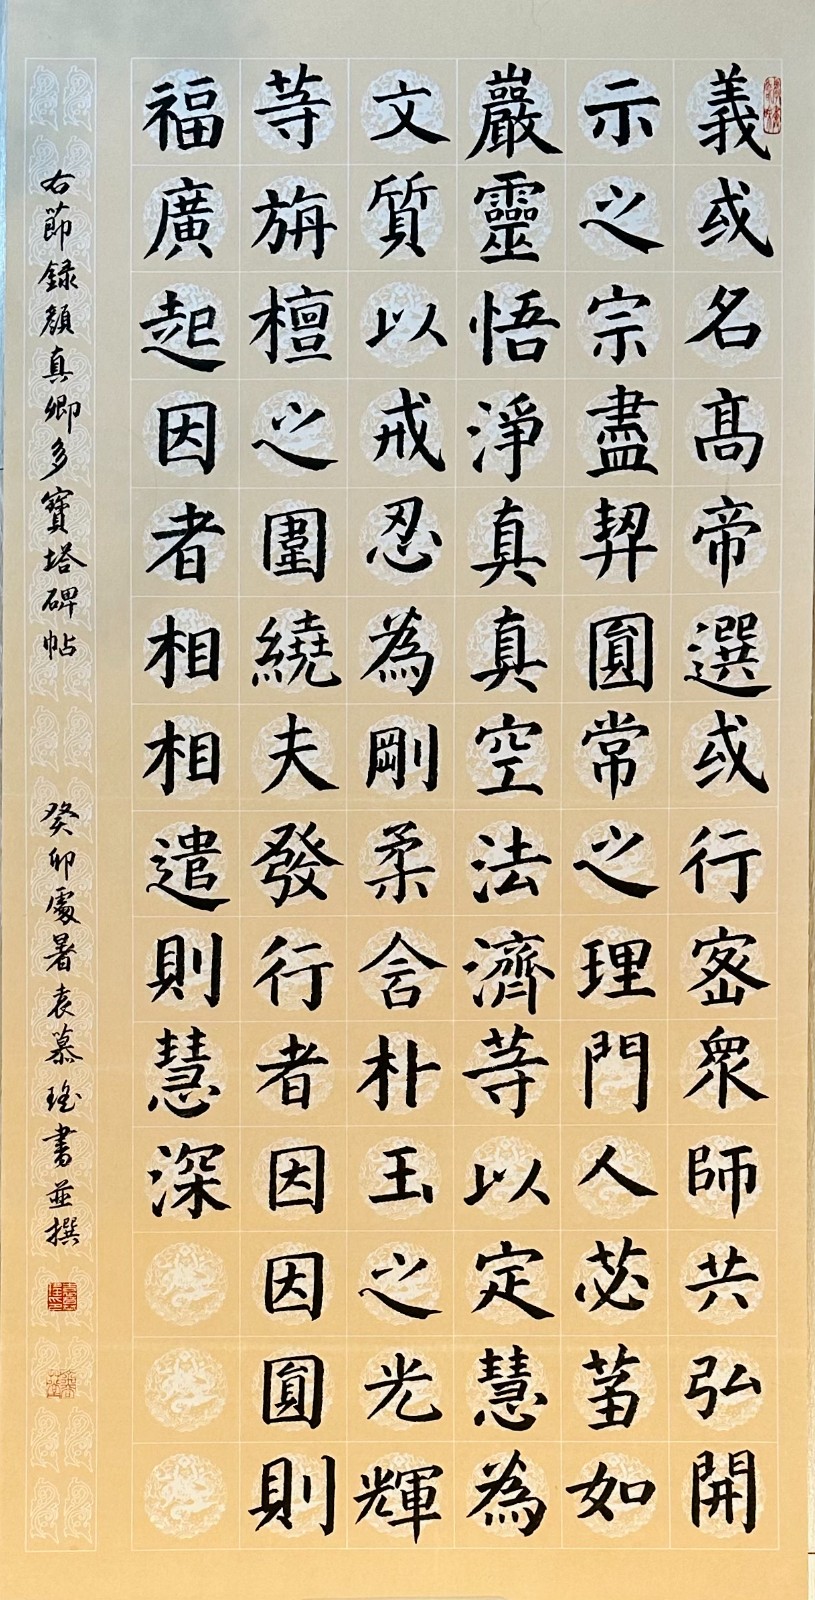 義或名高帝選或行密衆師共弘開
示之宗盡契圓常之理門人苾蒭如
巖靈悟淨真真空法濟等以定慧為
文質以戒忍為剛柔含朴玉之光輝
等旃檀之圍繞夫發行者因因圓則
福廣起因者相相遣則慧深
右節録顏真卿多寶塔碑帖 癸卯處暑袁慕瑤書並撰